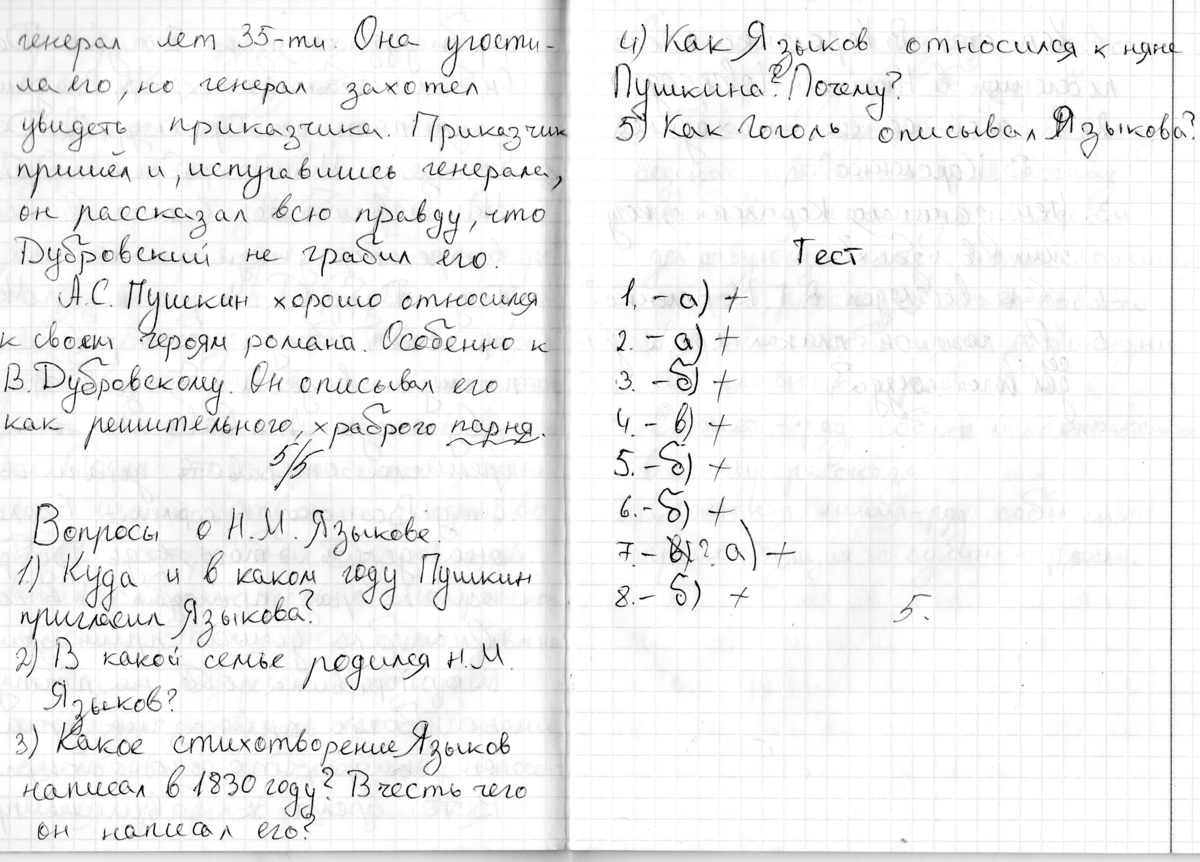 генерал лет 35-ти. Она угости-
ла его, но генерал захотел
увидеть приказчика. Приказчик
пришёл и, испугавшись генерала,
он рассказал всю правду, что
Дубровский не грабил его.
А.С. Пушкин хорошо относился
к своем героям романа. Особенно к
В. Дубровскому. Он описывал его
как решительного, храброго парня.
5/5
Вопросы о Н.М. Языкове.
1) Куда и в каком году Пушкин
пригласил Языкова?
2) В какой семье родился Н.М.
Языков?
3) Какое стихотворение Языков
написал в 1830 году? В честь чего
он написал его?
4) Как Языков относился к няне
Пушкина? Почему?
5) Как Гоголь описывал Языкова?
Тест
1. - а) +
2. - а) +
3. - б) +
4. - в) +
5. - б) +
6. - б) +
7. - в)? а) +
8. - б) +
5.